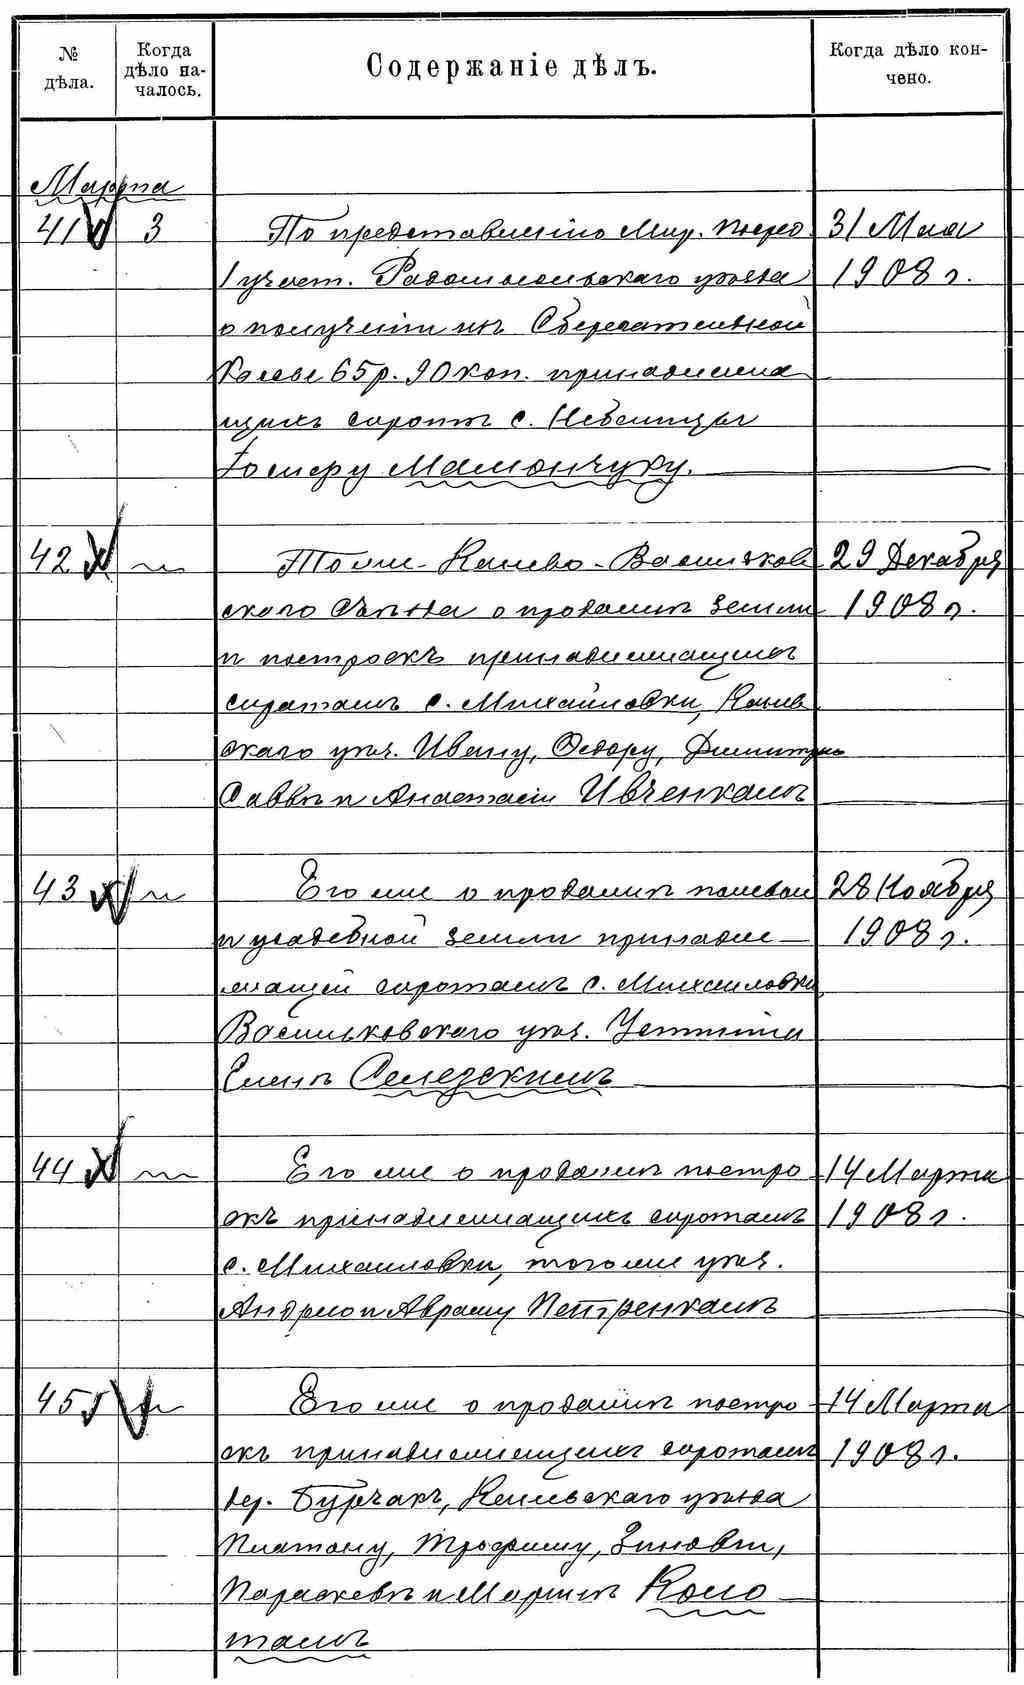 № дѣла.
Когда дѣло на-чалось.
Содержаніе дѣлъ.
Когда дѣло кон-чено.
Марта
41 3 По представленію Мир. Посред. 31 Мая
1 участ. Радомысльскаго уѣзда 1908 г.
о полученіи изъ Сберегательной
Кассы 65 р. 90 коп. принадлежа
щихъ сиротѣ с.
Мамончуку.
42 Тоже Канево-Васильков 29 Декабря
скаго Съѣзда о продажѣ земли 1908 г.
и построекъ принадлежащихъ
сиротамъ с. Михайловки, Канев
скаго уѣз. Ивану, Ѳедору, Димитрію
Саввѣ и Анастасіи Ивченкамъ
43 Его же о продажѣ полевой 28 Ноября
и усадебной земли принадле— 1908 г.
жащей сиротамъ с. Михайловки
Васильковскаго уѣз. Устиніи
Еленѣ Селезскимъ
44 Его же о продажѣ постро 14 Марта
екъ принадлежащихъ сиротамъ 1908 г.
с. Михайловки, того же уѣз.
Андрею и Авраму Петренкамъ
45 Его же о продажѣ постро 14 Марта
екъ принадлежащихъ сиротамъ 1908 г.
дер. Бурчакъ, Каневскаго уѣзда
Платону, Трофиму, Зиновіи,
Параскевѣ и Маріи Коло
тамъ